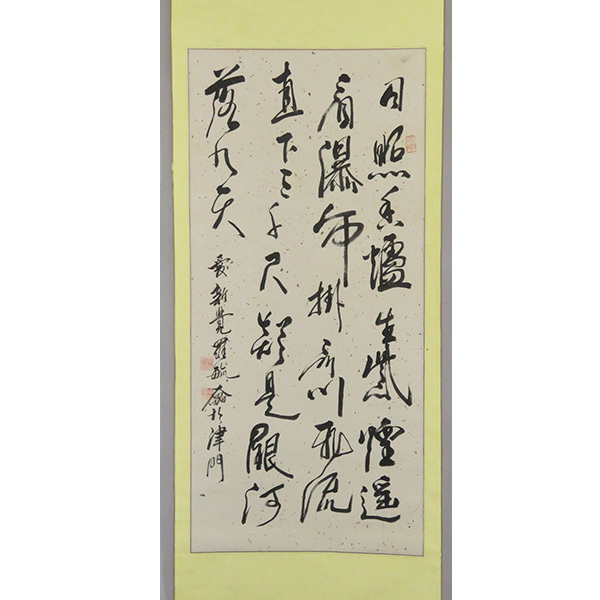 日照香爐生紫煙遥
看瀑布掛前川飛流
直下三千尺疑是銀河
落九天
愛新覺羅毓 於津門